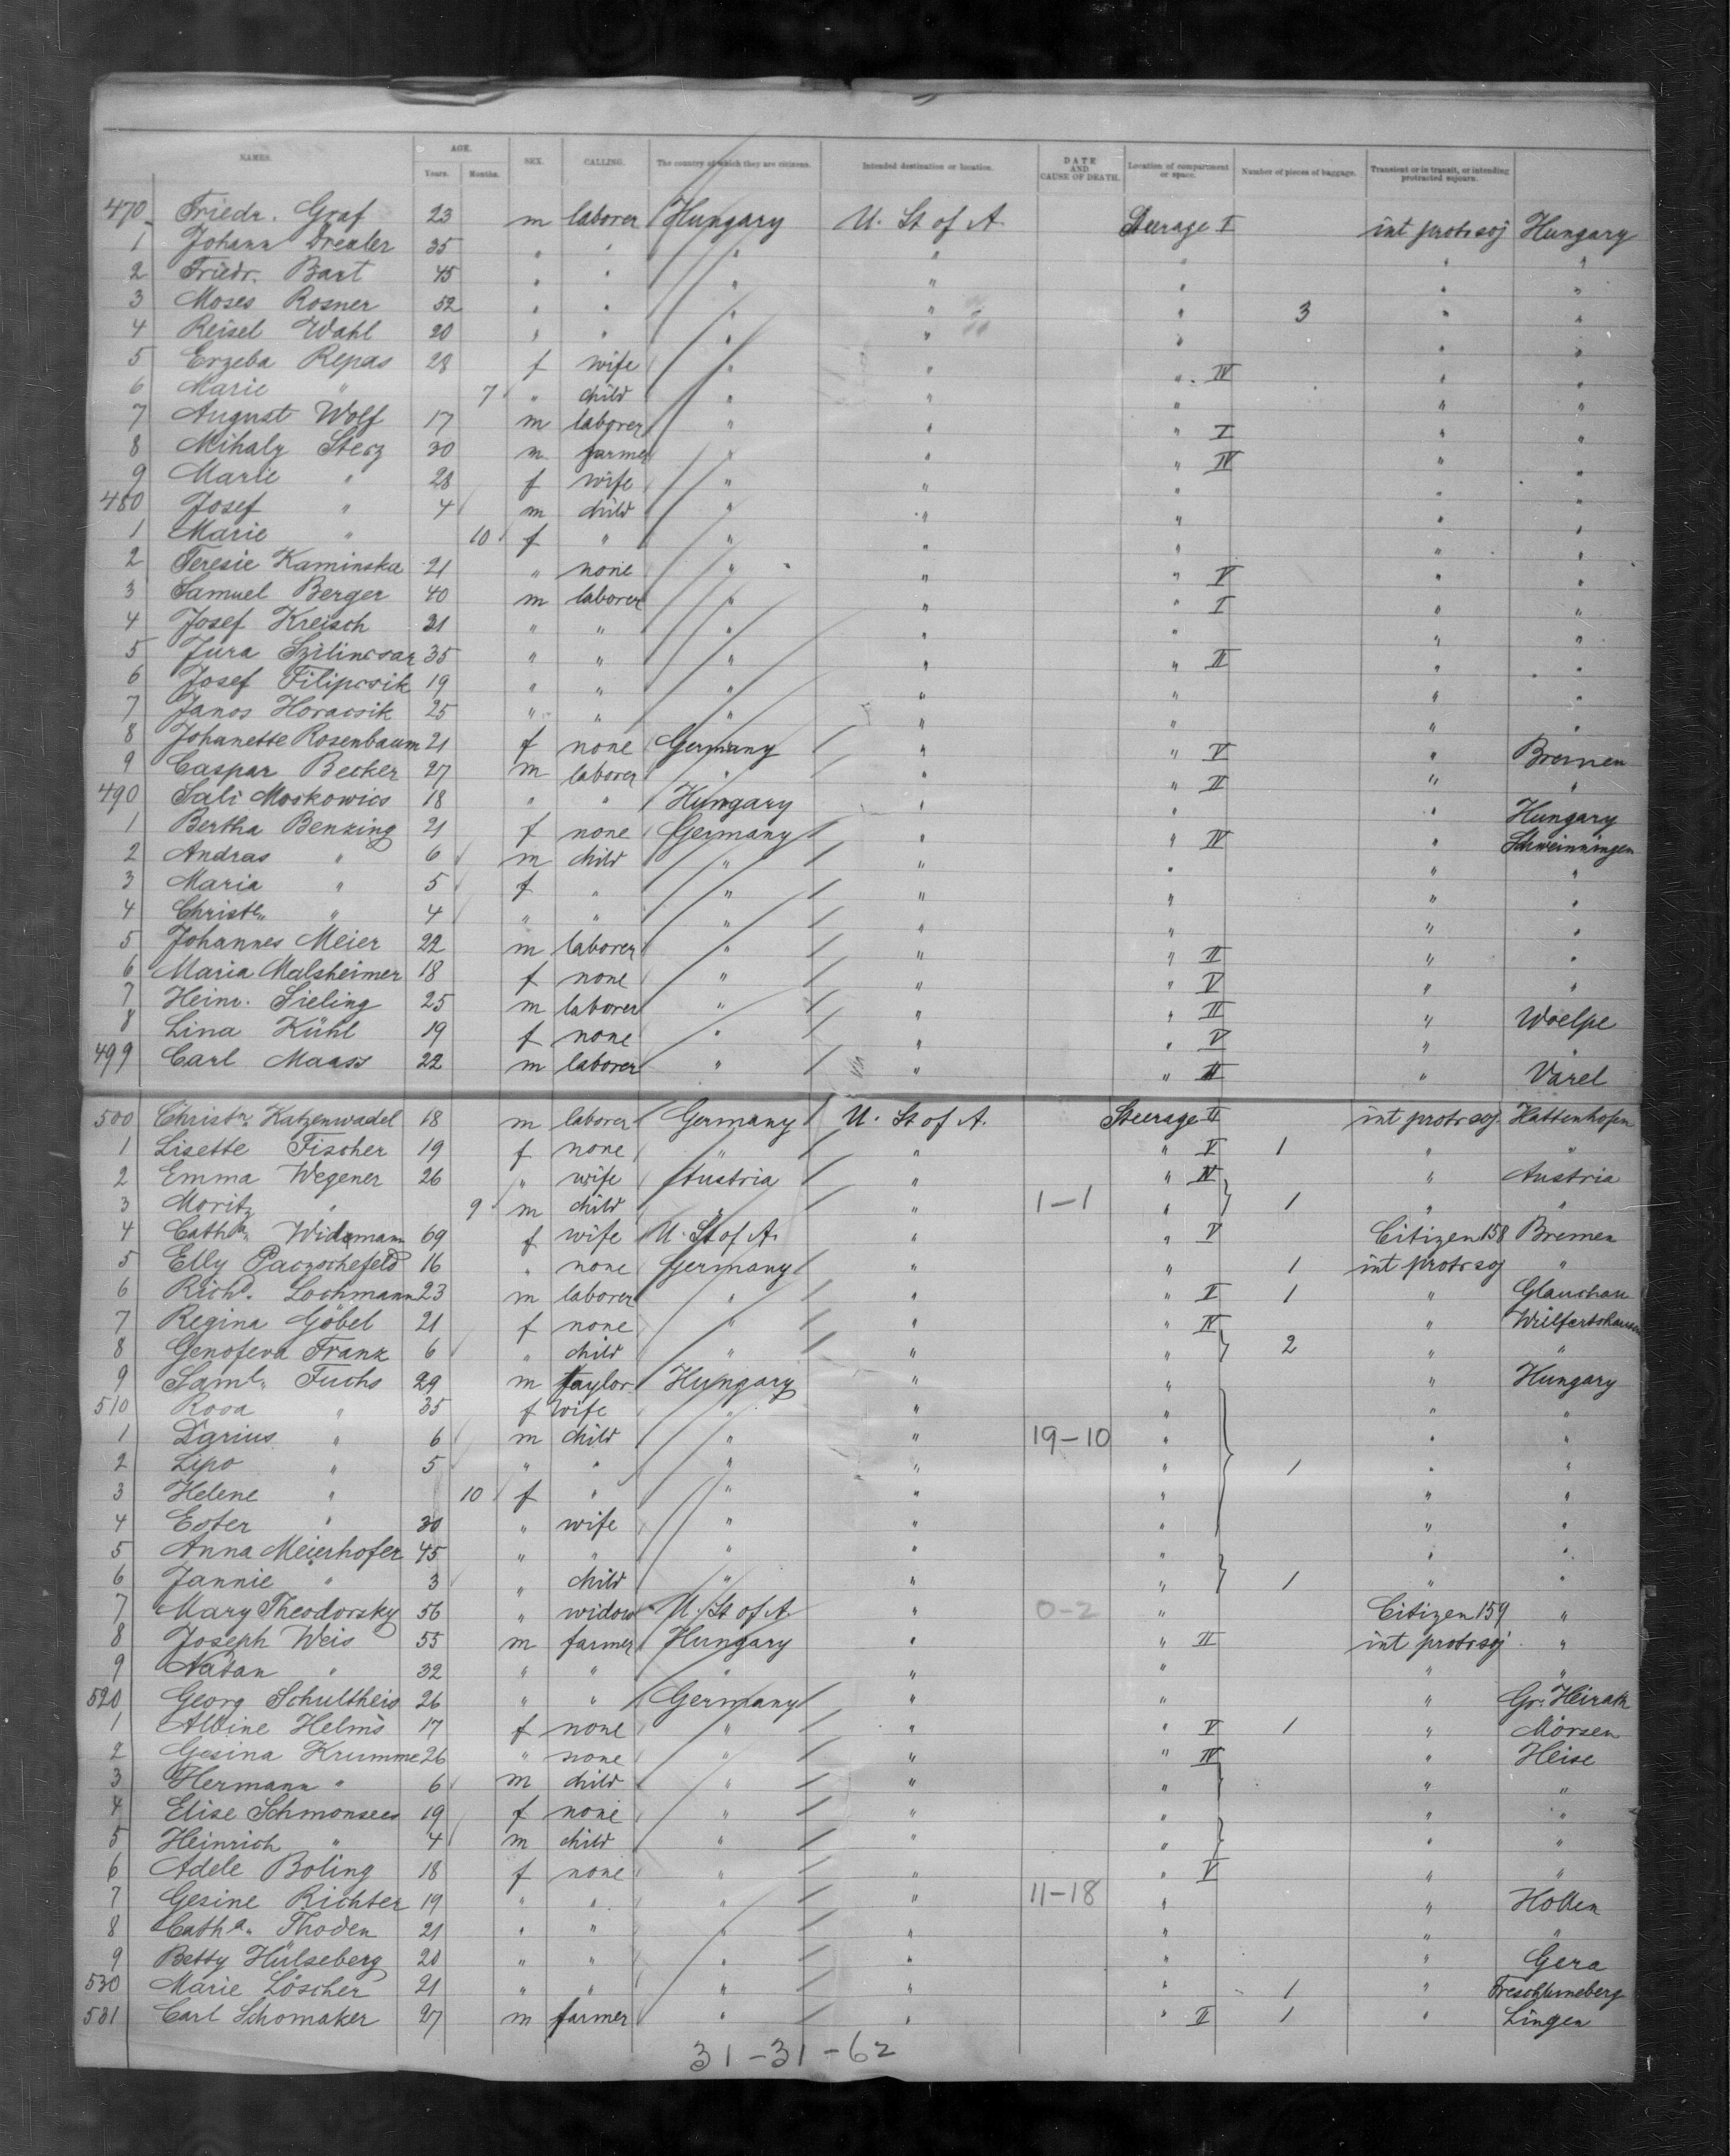 NAMES. AGE. Years. Months. SEX. CALLING. The country of which they are citizens. Intended destination or location. DATE AND CAUSE OF DEATH. Location of compartment or space. Number of pieces of baggage. Transient or in transit, or intending protracted sojourn.
470 Friedr. Graf 23 m laborer Hungary U. St of A. Steerage I int protr soj Hungary
1 Johann Drexler 35 " " " " " " "
2 Friedr. Bart 45 " " " " " " "
3 Moses Rosner 52 " " " " " 3 " "
4 Reisel Wahl 20 " " " " " " "
5 Erzeba Repas 28 f wife " " " IV " "
6 Marie " 7 " child " " " " "
7 August Wolf 17 m laborer " " " I " "
8 Mihaly Sterz 30 m farmer " " " IV " "
9 Marie " 28 f wife " " " " "
480 Josef " 4 m child " " " " "
1 Marie " 10 f " " " " " "
2 Teresie Kaminska 21 " none " " " V " "
3 Samuel Berger 40 m laborer " " " I " "
4 Josef Kreisch 21 " " " " " " "
5 Jura Szilincsar 35 " " " " " II " "
6 Josef Filipcsik 19 " " " " " " "
7 Janos Horacsik 25 " " " " " " "
8 Johanette Rosenbaum 21 f none Germany " " V " Bremen
9 Caspar Becker 27 m laborer " " " II " "
490 Sali Moskowics 18 " " Hungary " " " Hungary
1 Bertha Benzing 21 f none Germany " " IV " Schweinningen
2 Andras " 6 m child " " " " "
3 Maria " 5 f " " " " " "
4 Christe. " 4 " " " " " " "
5 Johannes Meier 22 m laborer " " " II " "
6 Maria Malsheimer 18 f none " " " V " "
7 Heinr. Sieling 25 m laborer " " " II " Woelpe
8 Lina Kühl 19 f none " " " V " "
499 Carl Maass 22 m laborer " " " II " Varel
500 Christn. Katzenwadel 18 m laborer Germany U. St of A. Steerage II int protr soj. Hattenhofen
1 Lisette Fischer 19 f none " " " V 1 " "
2 Emma Wegener 26 " wife Austria " " IV " Austria
3 Moritz " 9 m child " " 1-1 " 1 " "
4 Catha. Widamann 69 f wife U. St of A. " " V Citizen 158 Bremen
5 Elly Paczschefeld 16 " none Germany " " 1 int protr soj "
6 Richd. Lochmann 23 m laborer " " " II 1 " Glauchau
7 Regina Göbel 21 f none " " " IV " Wülfertshausen
8 Genofeva Franz 6 " child " " " 2 " "
9 Saml. Fuchs 29 m taylor Hungary " " " Hungary
510 Rosa " 35 f wife " " " " "
1 Darius " 6 m child " " 19-10 " " "
2 Lipo " 5 " " " " " 1 " "
3 Helene " 10 f " " " " " "
4 Ester " 30 " wife " " " " "
5 Anna Meierhofer 45 " " " " " " "
6 Jannie " 3 " child " " " 1 " "
7 Mary Theodorsky 56 " widow U. St of A. " 0-2 " Citizen 159 "
8 Joseph Weis 55 m farmer Hungary " " II int protr soj "
9 Natan " 32 " " " " " " "
520 Georg Schultheis 26 " " Germany " " " Gr. Heirath
1 Albine Helms 17 f none " " " V 1 " Mörsen
2 Gesina Krumme 26 " none " " " IV " Heise
3 Hermann " 6 m child " " " " "
4 Elise Schmonsees 19 f none " " " " "
5 Heinrich " 4 m child " " " " "
6 Adele Boling 18 f none " " " V " "
7 Gesine Richter 19 " " " " 11-18 " " Hollen
8 Catha. Thoden 21 " " " " " " "
9 Betty Hülseberg 20 " " " " " " Gera
530 Marie Löscher 21 " " " " " 1 "
531 Carl Schomaker 27 m farmer " " " II 1 " Lingen
31-31-62